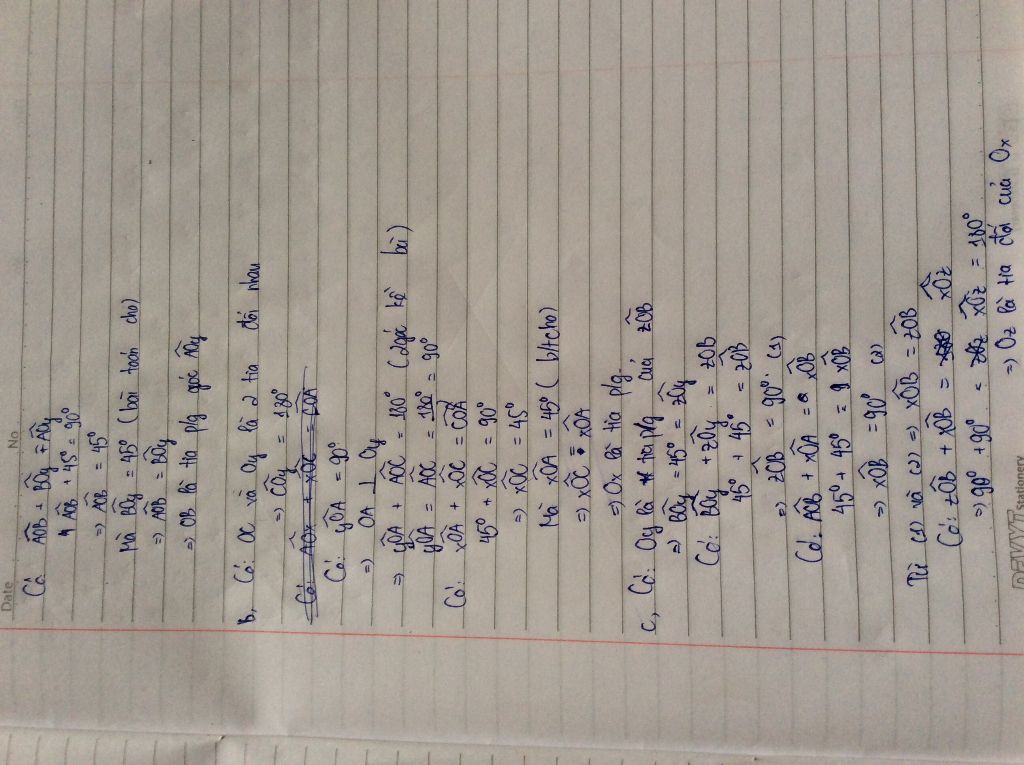 Date No
Có AÔB + BÔy = AÔy
AÔB + 45° = 90°
=> AÔB = 45°
Mà BÔy = 45° (bài toán cho)
=> AÔB = BÔy
=> OB là tia p/g góc AÔy
B, Có: OC và Oy là 2 tia đối nhau
=> CÔy = 180°
Có: AÔx + xÔC = CÔA
Có: yÔA = 90°
=> OA ⊥ Oy
=> yÔA + AÔC = 180° (2 góc kề bù)
yÔA = AÔC = 180° = 90°
Có: xÔA + xÔC = CÔA
45° + xÔC = 90°
=> xÔC = 45°
Mà xÔA = 45° (bt cho)
=> xÔC = xÔA
=> Ox là tia p/g
C, Có: Oy là tia p/g của zÔB
=> BÔy = 45° = zÔy
Có: BÔy + zÔy = zÔB
45° + 45° = zÔB
=> zÔB = 90° (1)
Có: AÔB + xÔA = xÔB
45° + 45° = xÔB
=> xÔB = 90° (2)
Từ (1) và (2) => xÔB = zÔB
Có: zÔB + xÔB = xÔz
=> 90° + 90° = xÔz = 180°
=> Oz là tia đối của Ox
Stationery